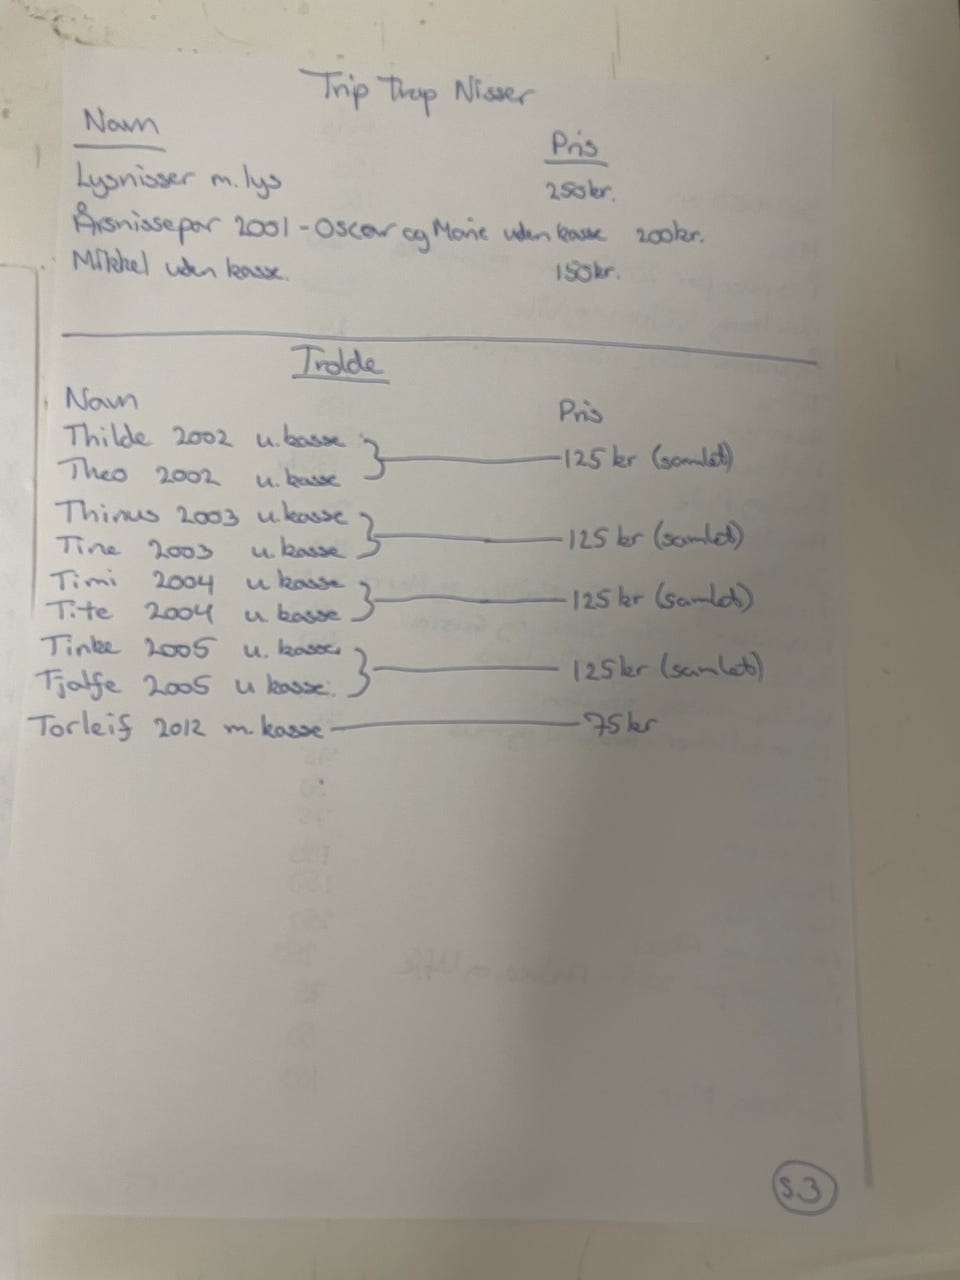 Trip Trap Nisser
Navn Pris
Lysnisser m. lys 250kr.
Årsnissepar 2001 - Oscar og Marie uden kasse 200kr.
Mikkel uden kasse. 150kr.
Trolde
Navn Pris
Thilde 2002 u. kasse
125 kr (samlet)
Theo 2002 u. kasse
Thinus 2003 u. kasse
125 kr (samlet)
Tine 2003 u. kasse
Timi 2004 u kasse
125 kr (samlet)
Tite 2004 u. kasse
Tinke 2005 u. kasse
125 kr (samlet)
Tjalfe 2005 u kasse.
Torleif 2012 m. kasse 75 kr
S.3